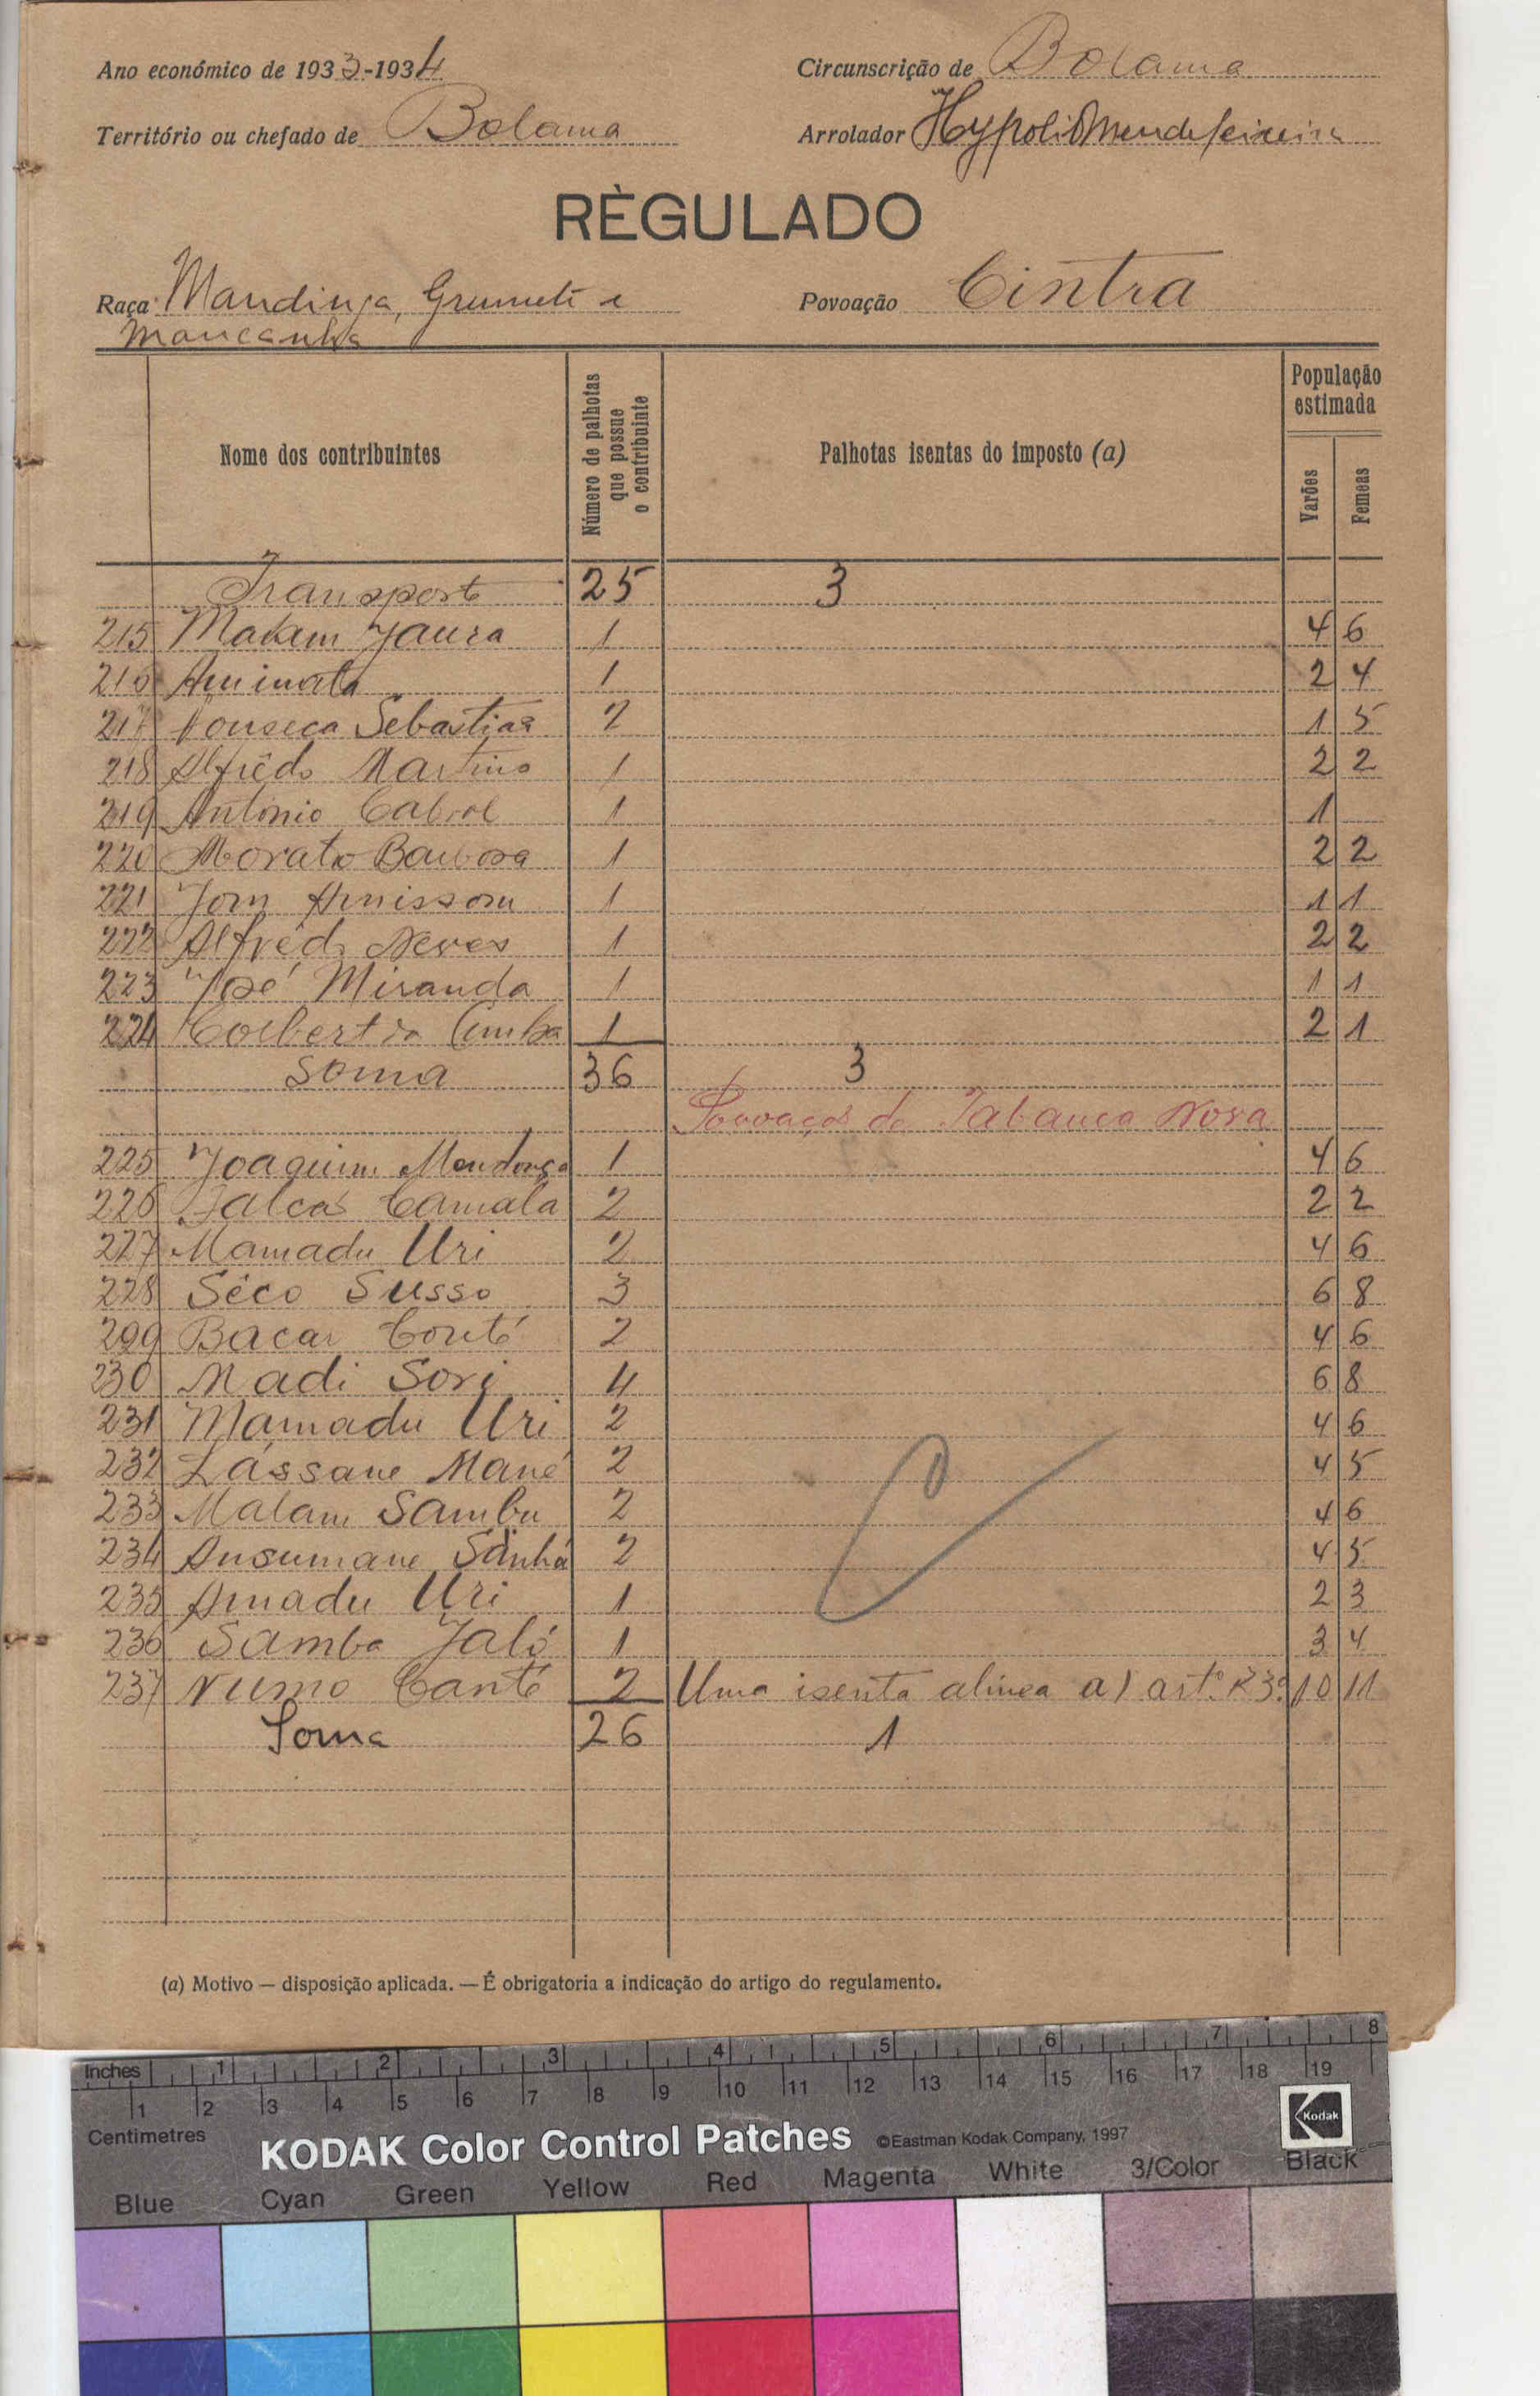 Ano económico de 1933-1934
Circunscrição de Bolama
Território ou chefado de Bolama
Arrolador Hypolito Mendes
RÈGULADO
Raça Mandinga, Grumete e
Mancanha
Povoação Cintra
Nome dos contribuintes
Número de palhotas que possue o contribuinte
Palhotas isentas do imposto (a)
População estimada
Varões
Femeas
Transporte 25 3
215 Malam Jaura 1 4 6
216 Aminata 1 2 4
217 Fonseca Sebastião 2 1 5
218 Alfrêdo Martins 1 2 2
219 António Cabral 1 1
220 Morato Barbosa 1 2 2
221 Jom 1 1 1
222 Alfrêdo Neves 1 2 2
223 José Miranda 1 1 1
224 1 2 1
Soma 36 3
Povoação de Tabanca Nova
225 Joaquim Mendonça 1 4 6
226 Camala 2 2 2
227 Mamadu Uri 2 4 6
228 Séco Susso 3 6 8
299 Bacar Conté 2 4 6
230 Madi Sori 4 6 8
231 Mamadu Uri 2 4 6
232 Lássane Mané 2 4 5
233 Malam Sambu 2 4 6
234 Ansumane Sanhá 2 4 5
235 Amadu Uri 1 2 3
236 Samba Jaló 1 3 4
237 Numo Canté 2 Uma isenta alinea a) art.º 23º 10 11
Soma 26 1
(a) Motivo — disposição aplicada. — É obrigatoria a indicação do artigo do regulamento.
Inches 1 2 3 4 5 6 7 8
Centimetres 1 2 3 4 5 6 7 8 9 10 11 12 13 14 15 16 17 18 19
KODAK Color Control Patches ©Eastman Kodak Company, 1997
Kodak
Blue Cyan Green Yellow Red Magenta White 3/Color Black